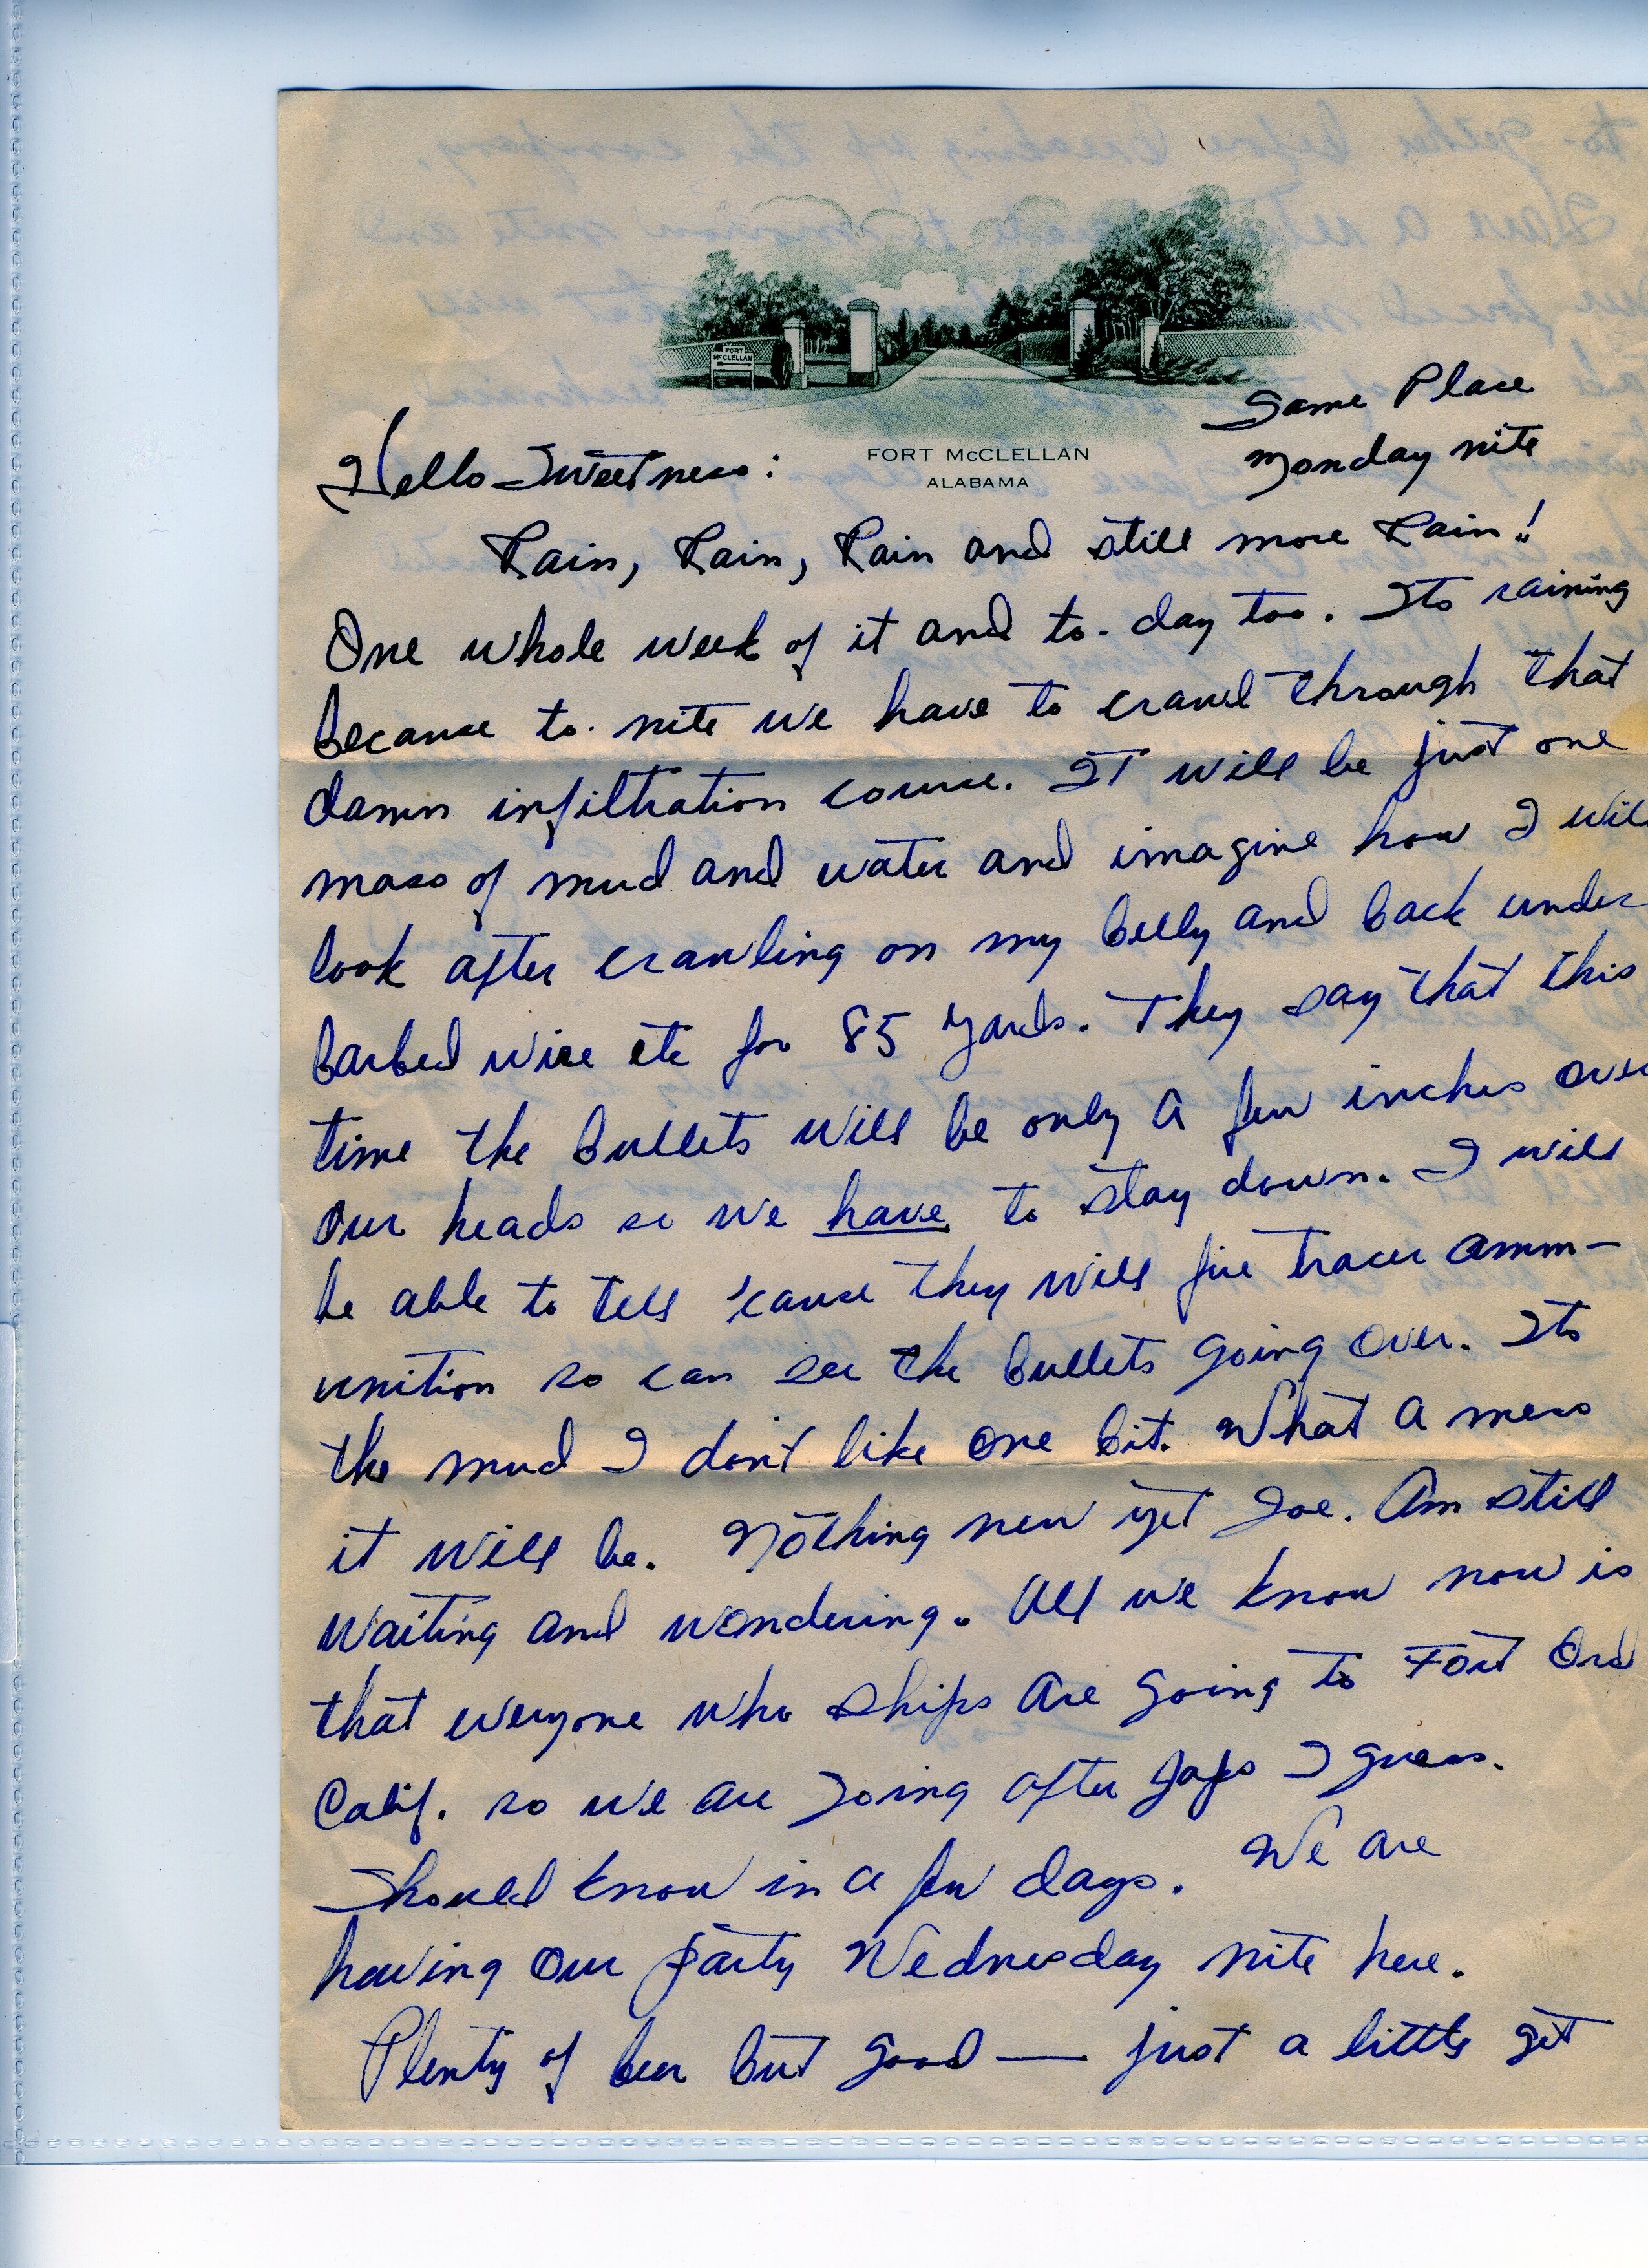 FORT
McCLELLAN
Same Place
FORT McCLELLAN
ALABAMA
Monday nite
Hello Sweetness:
Rain, Rain, Rain and still more Rain!
One whole week of it and to-day too. Its raining
because to-nite we have to crawl through that
damn infiltration course. It will be just one
mass of mud and water and imagine how I will
look after crawling on my belly and back under
barbed wire etc for 85 yards. They say that this
time the bullets will be only a few inches over
our heads so we have to stay down. I will
be able to tell 'cause they will fire tracer amm-
unition so can see the bullets going over. Its
the mud I don't like one bit. What a mess
it will be. Nothing new yet Joe. Am still
waiting and wondering. All we know now is
that everyone who ships are going to Fort Ord
Calif. so we are going after Japs I guess.
Should know in a few days. We are
having our party Wednesday nite here.
Plenty of beer but good — just a little get